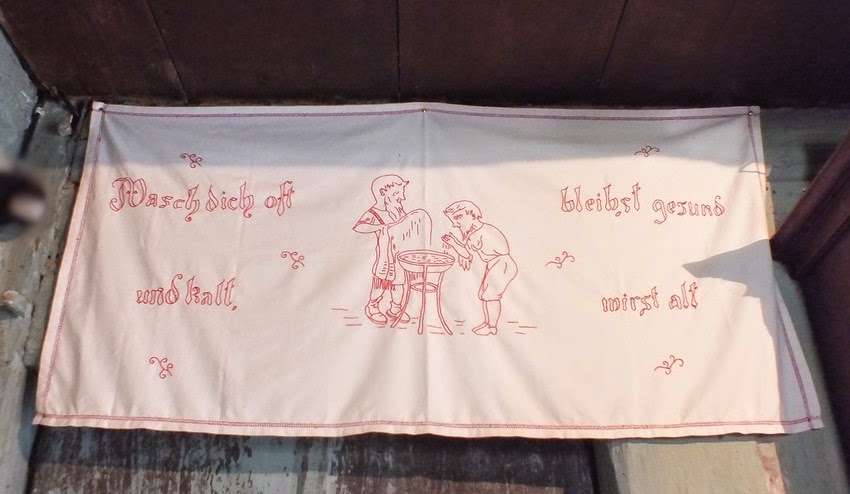 Wasch dich oft
und kalt,
bleibst gesund
wirst alt